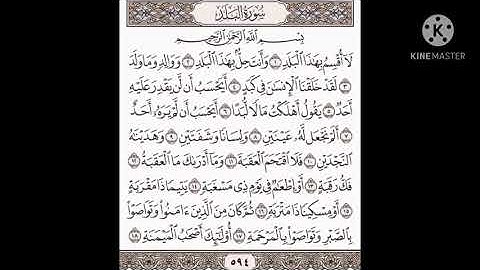 سُورَةُ البَلَدِ
بِسْمِ اللَّهِ الرَّحْمَٰنِ الرَّحِيمِ
لَا أُقْسِمُ بِهَٰذَا الْبَلَدِ ١ وَأَنتَ حِلٌّ بِهَٰذَا الْبَلَدِ ٢ وَوَالِدٍ وَمَا وَلَدَ
٣ لَقَدْ خَلَقْنَا الْإِنسَٰنَ فِي كَبَدٍ ٤ أَيَحْسَبُ أَن لَّن يَقْدِرَ عَلَيْهِ
أَحَدٌ ٥ يَقُولُ أَهْلَكْتُ مَالًا لُّبَدًا ٦ أَيَحْسَبُ أَن لَّمْ يَرَهُ أَحَدٌ
٧ أَلَمْ نَجْعَل لَّهُ عَيْنَيْنِ ٨ وَلِسَانًا وَشَفَتَيْنِ ٩ وَهَدَيْنَٰهُ
النَّجْدَيْنِ ١٠ فَلَا اقْتَحَمَ الْعَقَبَةَ ١١ وَمَا أَدْرَىٰكَ مَا الْعَقَبَةُ ١٢
فَكُّ رَقَبَةٍ ١٣ أَوْ إِطْعَٰمٌ فِي يَوْمٍ ذِي مَسْغَبَةٍ ١٤ يَتِيمًا ذَا مَقْرَبَةٍ
١٥ أَوْ مِسْكِينًا ذَا مَتْرَبَةٍ ١٦ ثُمَّ كَانَ مِنَ الَّذِينَ ءَامَنُوا وَتَوَاصَوْا
بِالصَّبْرِ وَتَوَاصَوْا بِالْمَرْحَمَةِ ١٧ أُولَٰئِكَ أَصْحَٰبُ الْمَيْمَنَةِ ١٨
٥٩٤
KINEMASTER